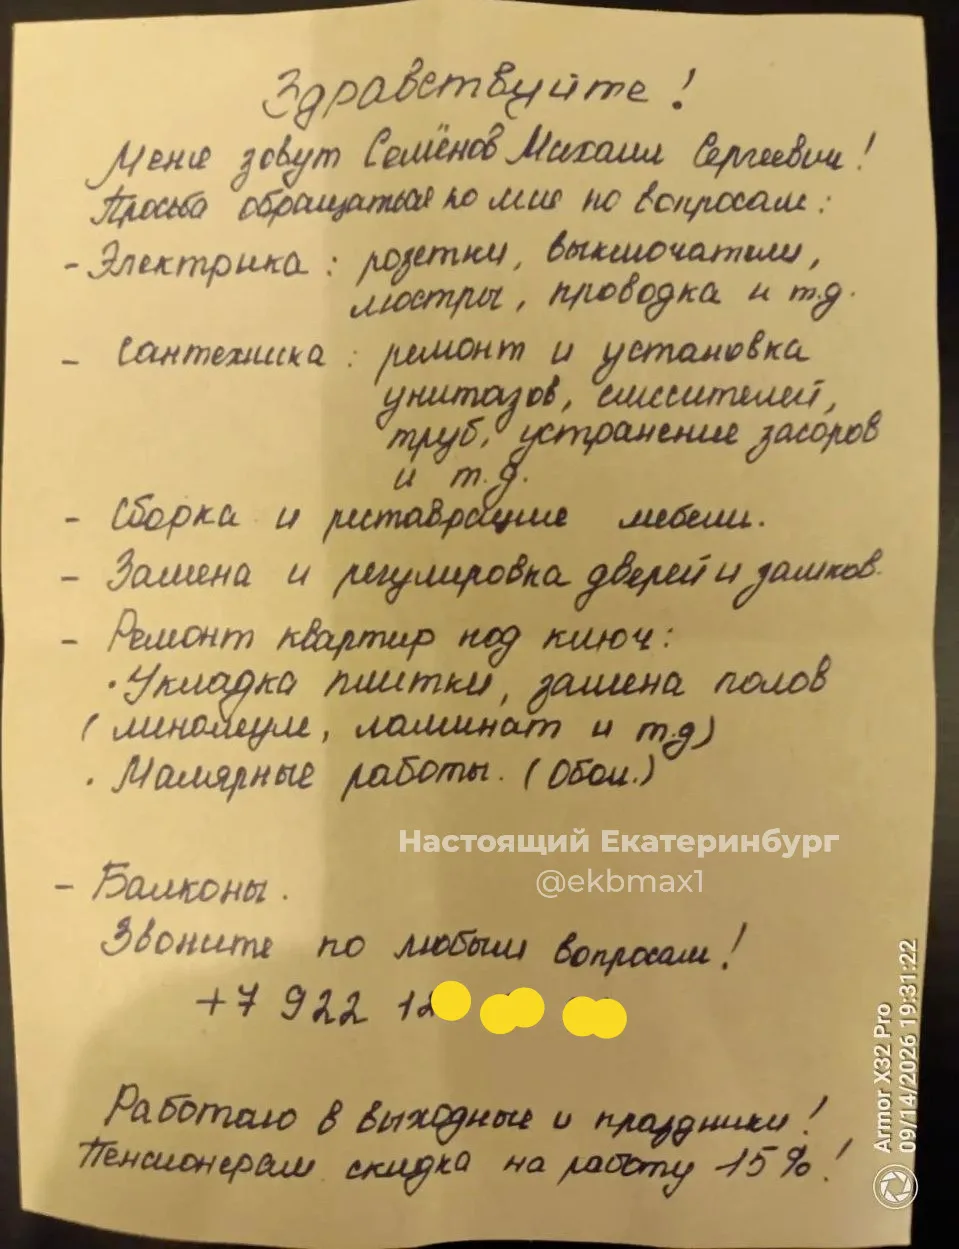 Здравствуйте!
Меня зовут Семёнов Михаил Сергеевич!
Просьба обращаться ко мне по вопросам:
- Электрика: розетки, выключатели,
люстры, проводка и т.д.
- Сантехника: ремонт и установка
унитазов, смесителей,
труб, устранение засоров
и т.д.
- Сборка и реставрация мебели.
- Замена и регулировка дверей и замков.
- Ремонт квартир под ключ:
· Укладка плитки, замена полов
(линолеум, ламинат и т.д)
· Малярные работы. (Обои.)
Настоящий Екатеринбург
@ekbmax1
- Балконы.
Звоните по любым вопросам!
+7 922 12
Работаю в выходные и праздники!
Пенсионерам скидка на работу 15%!
Armor X32 Pro
09/14/2026 19:31:22